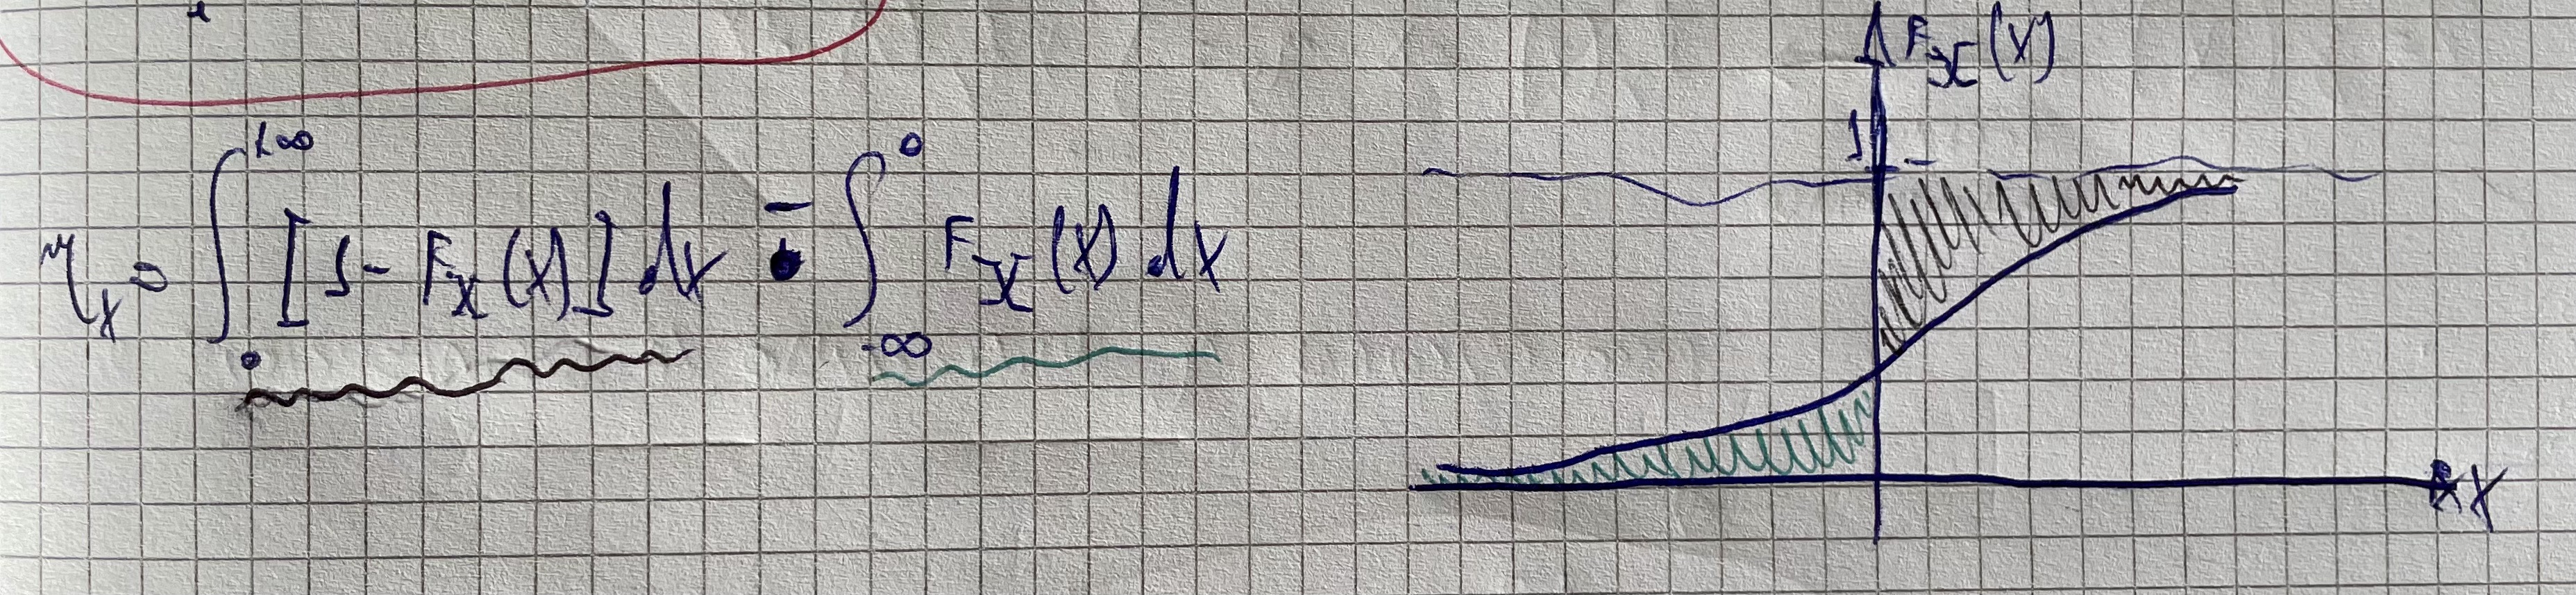 η_x = ∫_0^{+∞} [1 - F_X(x)] dx - ∫_{-∞}^0 F_X(x) dx
F_X(x)
1
x